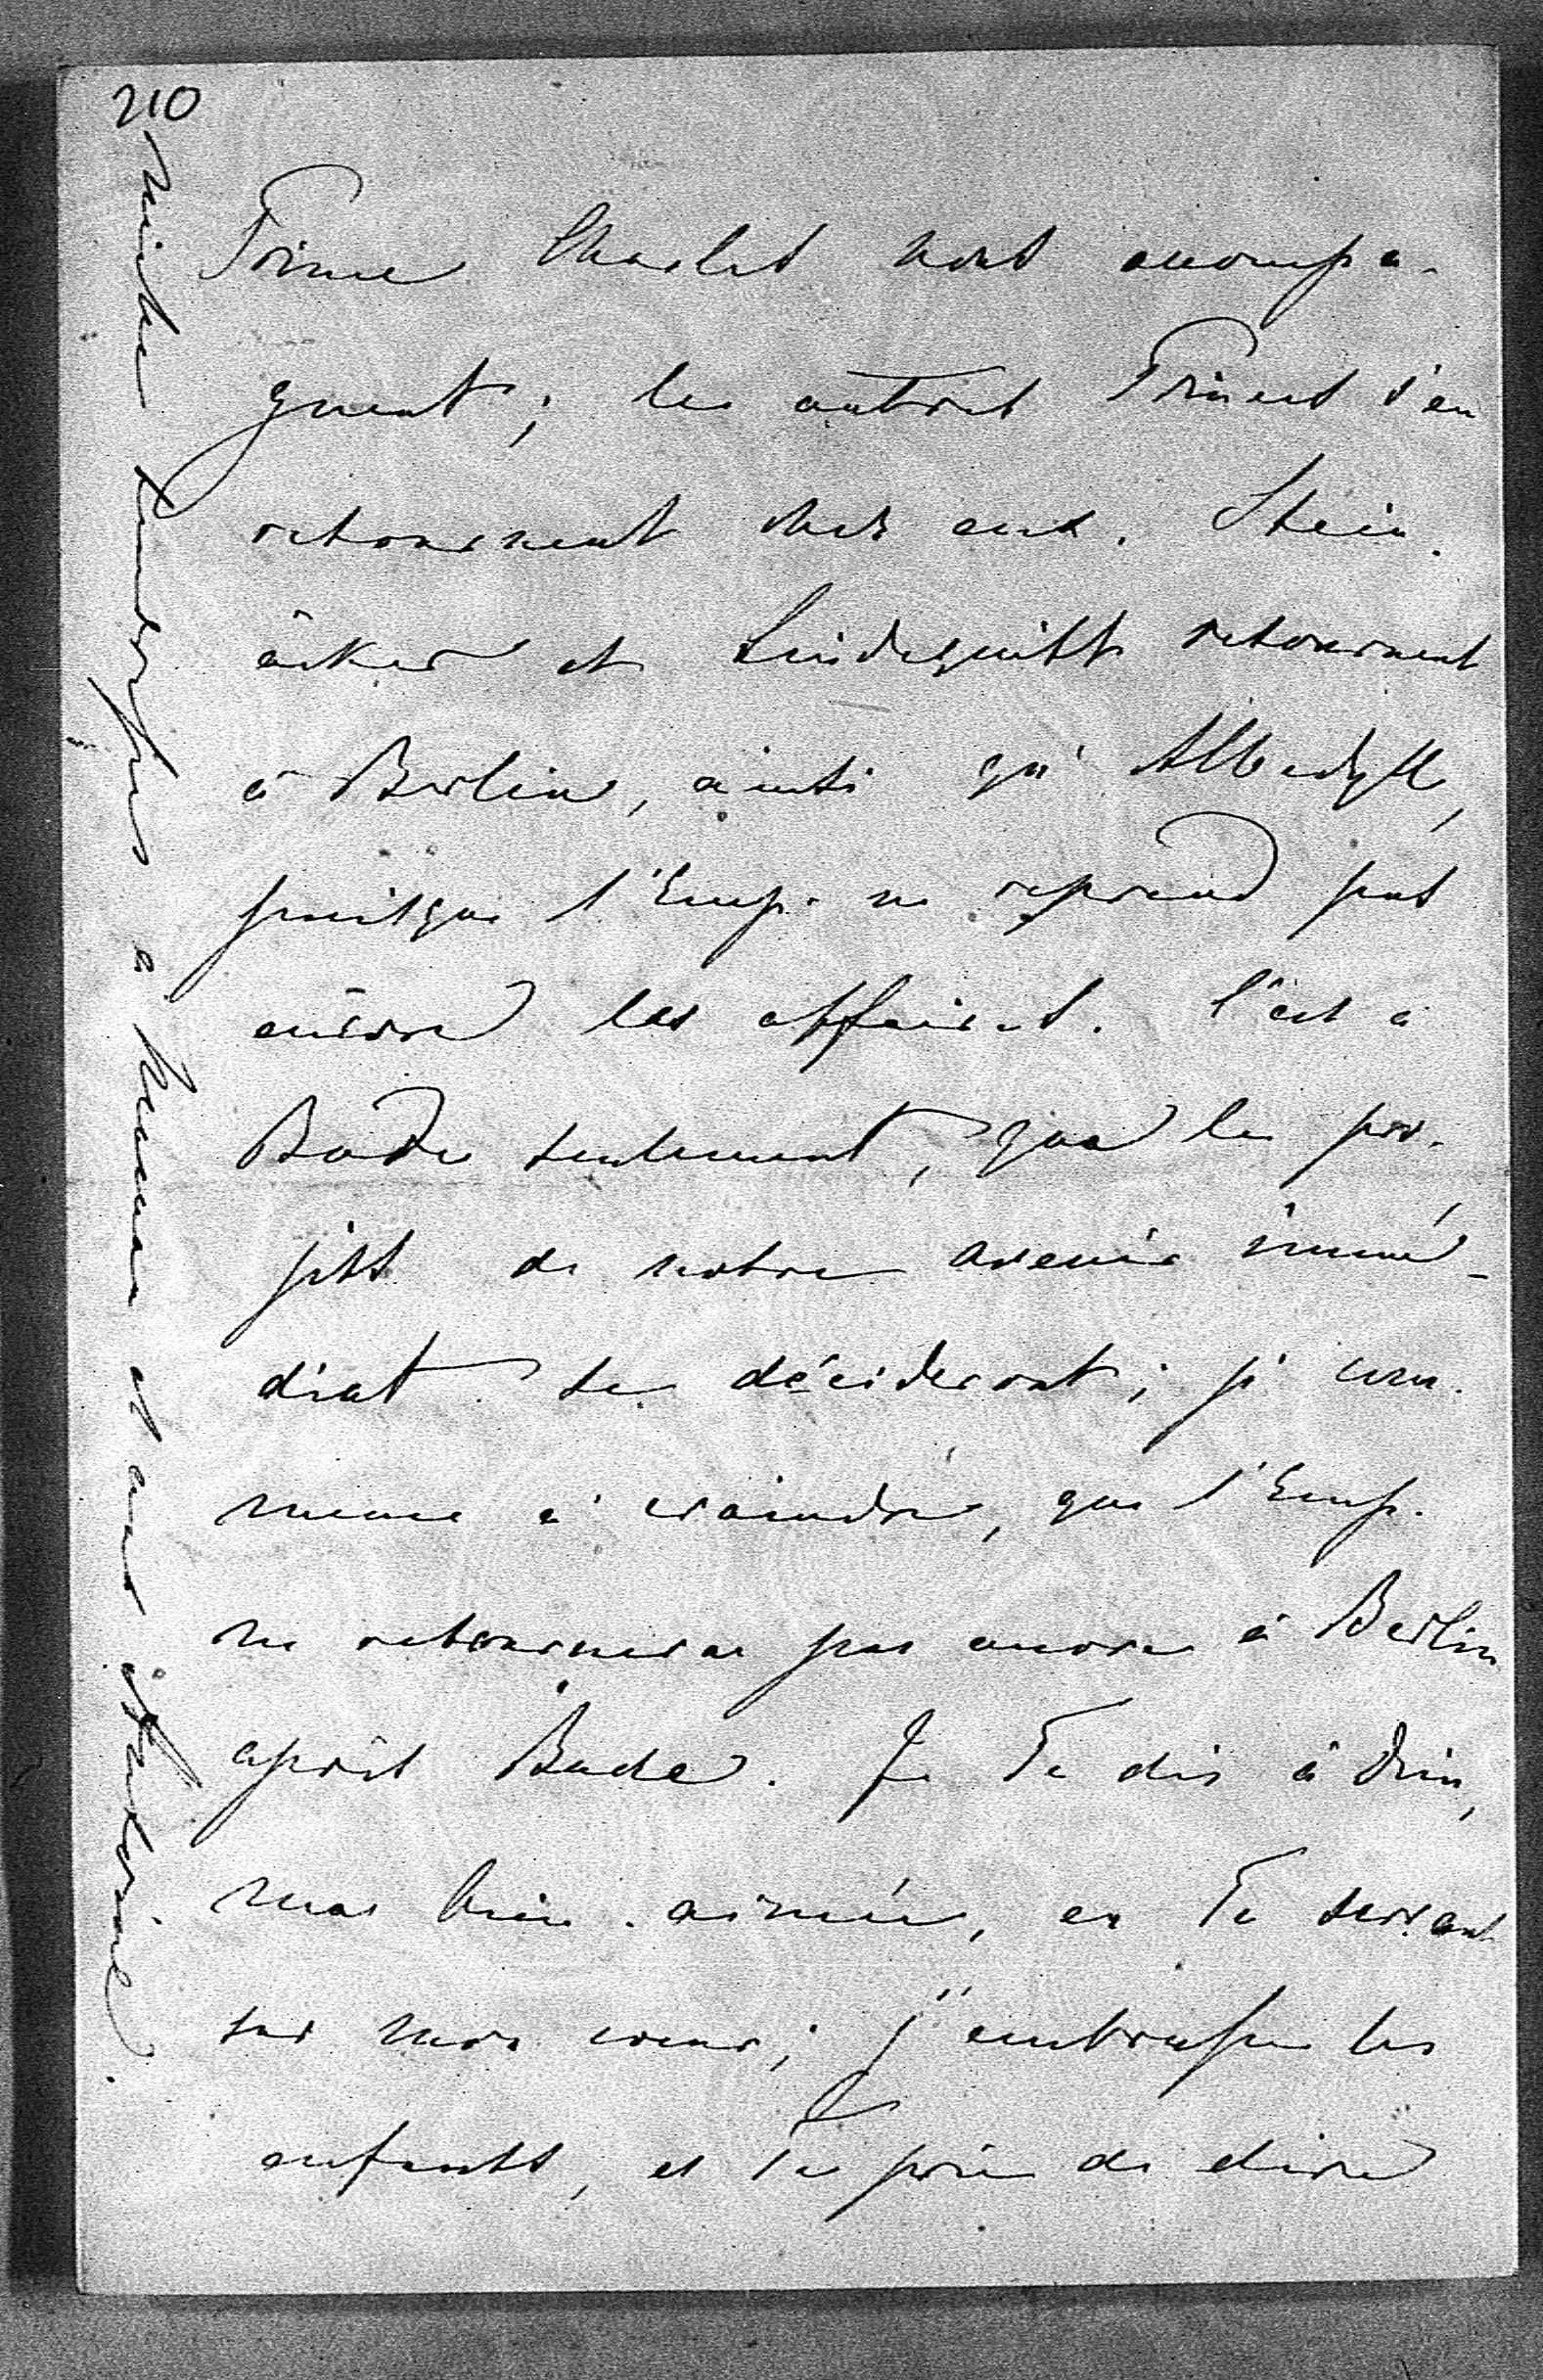 210
Prince Charles nous accompa-
gnent; les autres Princes s'en
retournent chez eux. Stein-
äcker et Lindequist retournent
à Berlin, ainsi qu'Albedyll,
puisque l'Emp. ne reprend pas
encore les affaires. C'est à
Bade seulement, que les pro-
jets de notre avenir immé-
diat se décideront; je com-
mence à craindre, que l'Emp.
ne retournera pas encore à Berlin
après Bade. Je Te dis adieu,
ma bien-aimée, en Te serrant
sur mon coeur; j'embrasse les
enfants, et Te prie de dire
mille tendresses à Maman et aux